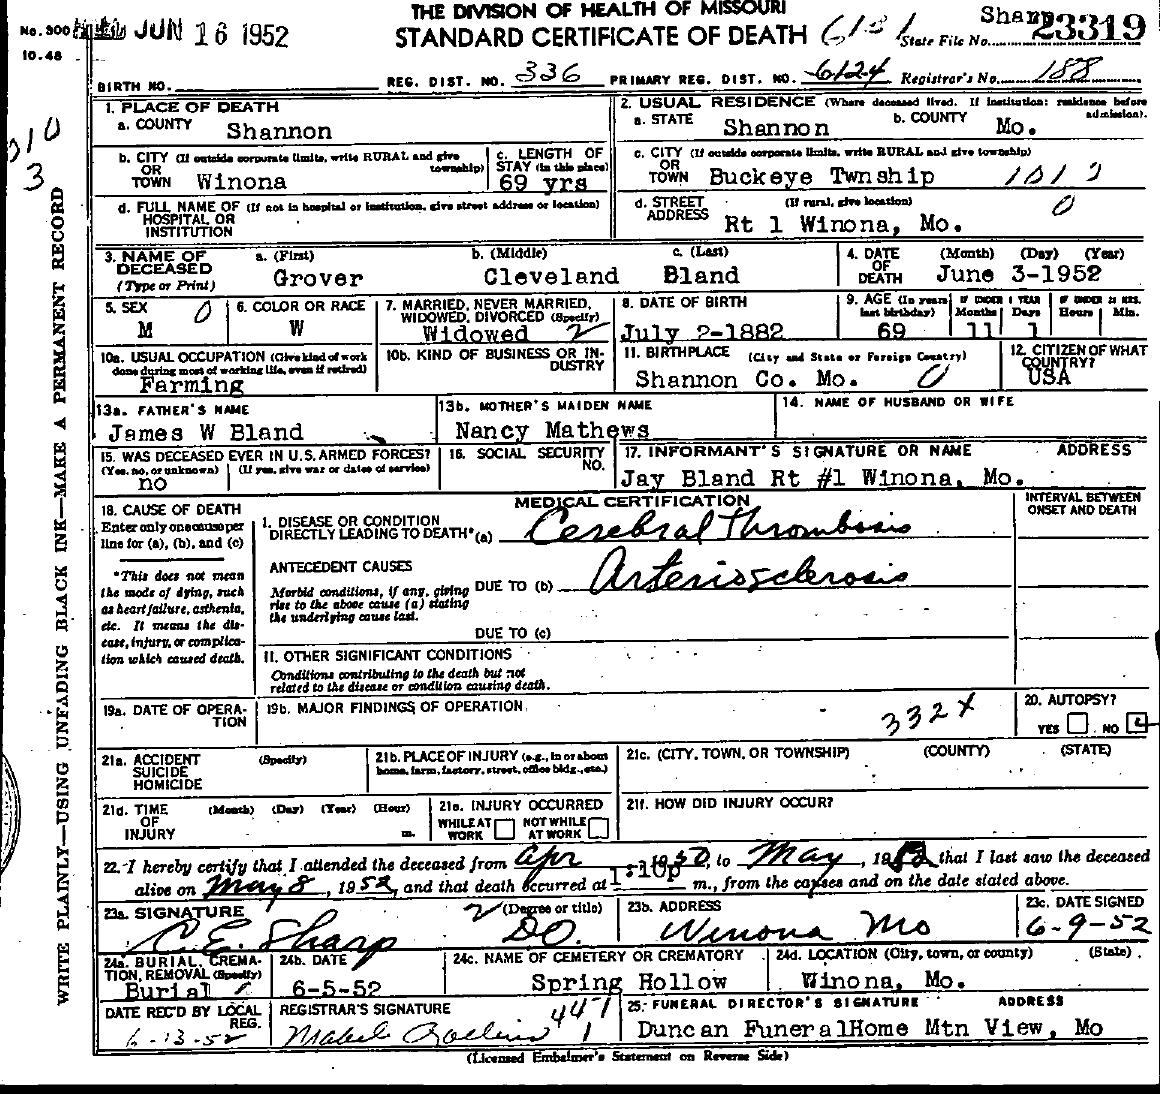 THE DIVISION OF HEALTH OF MISSOURI
No. 300 JUN 16 1952 STANDARD CERTIFICATE OF DEATH 6131 State File No. 23319
10.48
BIRTH NO. REG. DIST. NO. 336 PRIMARY REG. DIST. NO. 6124 Registrar's No. 188
1. PLACE OF DEATH
a. COUNTY Shannon
2. USUAL RESIDENCE (Where deceased lived. If institution: residence before admission).
a. STATE Shannon b. COUNTY Mo.
b. CITY (If outside corporate limits, write RURAL and give township) OR TOWN Winona
c. LENGTH OF STAY (in this place) 69 yrs
c. CITY (If outside corporate limits, write RURAL and give township) OR TOWN Buckeye Twnship
d. FULL NAME OF (If not in hospital or institution, give street address or location) HOSPITAL OR INSTITUTION
d. STREET ADDRESS (If rural, give location) Rt 1 Winona, Mo. 0
3. NAME OF DECEASED (Type or Print) a. (First) Grover b. (Middle) Cleveland c. (Last) Bland
4. DATE OF DEATH (Month) (Day) (Year) June 3-1952
5. SEX M 0
6. COLOR OR RACE W
7. MARRIED, NEVER MARRIED, WIDOWED, DIVORCED (Specify) Widowed 2
8. DATE OF BIRTH July 2-1882
9. AGE (In years last birthday) 69 IF UNDER 1 YEAR Months 11 Days 1 IF UNDER 24 HRS. Hours Min.
10a. USUAL OCCUPATION (Give kind of work done during most of working life, even if retired) Farming
10b. KIND OF BUSINESS OR INDUSTRY
11. BIRTHPLACE (City and State or Foreign Country) Shannon Co. Mo. 0
12. CITIZEN OF WHAT COUNTRY? USA
13a. FATHER'S NAME James W Bland
13b. MOTHER'S MAIDEN NAME Nancy Mathews
14. NAME OF HUSBAND OR WIFE
15. WAS DECEASED EVER IN U.S. ARMED FORCES? (Yes, no, or unknown) (If yes, give war or dates of service) no
16. SOCIAL SECURITY NO.
17. INFORMANT'S SIGNATURE OR NAME ADDRESS
Jay Bland Rt #1 Winona, Mo.
18. CAUSE OF DEATH
Enter only one cause per line for (a), (b), and (c)
*This does not mean the mode of dying, such as heart failure, asthenia, etc. It means the disease, injury, or complication which caused death.
MEDICAL CERTIFICATION
INTERVAL BETWEEN ONSET AND DEATH
I. DISEASE OR CONDITION DIRECTLY LEADING TO DEATH* (a) Cerebral Thrombosis
ANTECEDENT CAUSES
Morbid conditions, if any, giving rise to the above cause (a) stating the underlying cause last.
DUE TO (b) Arteriosclerosis
DUE TO (c)
II. OTHER SIGNIFICANT CONDITIONS
Conditions contributing to the death but not related to the disease or condition causing death.
19a. DATE OF OPERATION
19b. MAJOR FINDINGS OF OPERATION
332X
20. AUTOPSY? YES NO
21a. ACCIDENT SUICIDE HOMICIDE (Specify)
21b. PLACE OF INJURY (e.g., in or about home, farm, factory, street, office bldg., etc.)
21c. (CITY, TOWN, OR TOWNSHIP) (COUNTY) (STATE)
21d. TIME OF INJURY (Month) (Day) (Year) (Hour) m.
21e. INJURY OCCURRED WHILE AT WORK NOT WHILE AT WORK
21f. HOW DID INJURY OCCUR?
22. I hereby certify that I attended the deceased from Apr 1950, to May, 1952 that I last saw the deceased
alive on May 8, 1952, and that death occurred at 1:10p m., from the causes and on the date stated above.
23a. SIGNATURE (Degree or title) C.E. Sharp DO.
23b. ADDRESS Winona Mo
23c. DATE SIGNED 6-9-52
24a. BURIAL, CREMATION, REMOVAL (Specify) Burial
24b. DATE 6-5-52
24c. NAME OF CEMETERY OR CREMATORY Spring Hollow
24d. LOCATION (City, town, or county) (State) Winona, Mo.
DATE REC'D BY LOCAL REG. 6-13-52
REGISTRAR'S SIGNATURE Mabel
25. FUNERAL DIRECTOR'S SIGNATURE ADDRESS
Duncan FuneralHome Mtn View, Mo
(Licensed Embalmer's Statement on Reverse Side)
WRITE PLAINLY—USING UNFADING BLACK INK—MAKE A PERMANENT RECORD